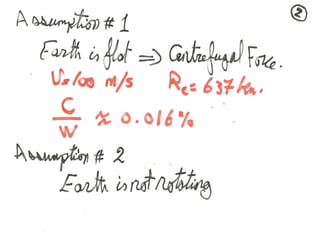 ②
Assumption # 1
Earth is flat ⇒ Centrefugal Force.
V=100 m/s Re=637 km.
C/W ≈ 0.016%
Assumption # 2
Earth is not rotating